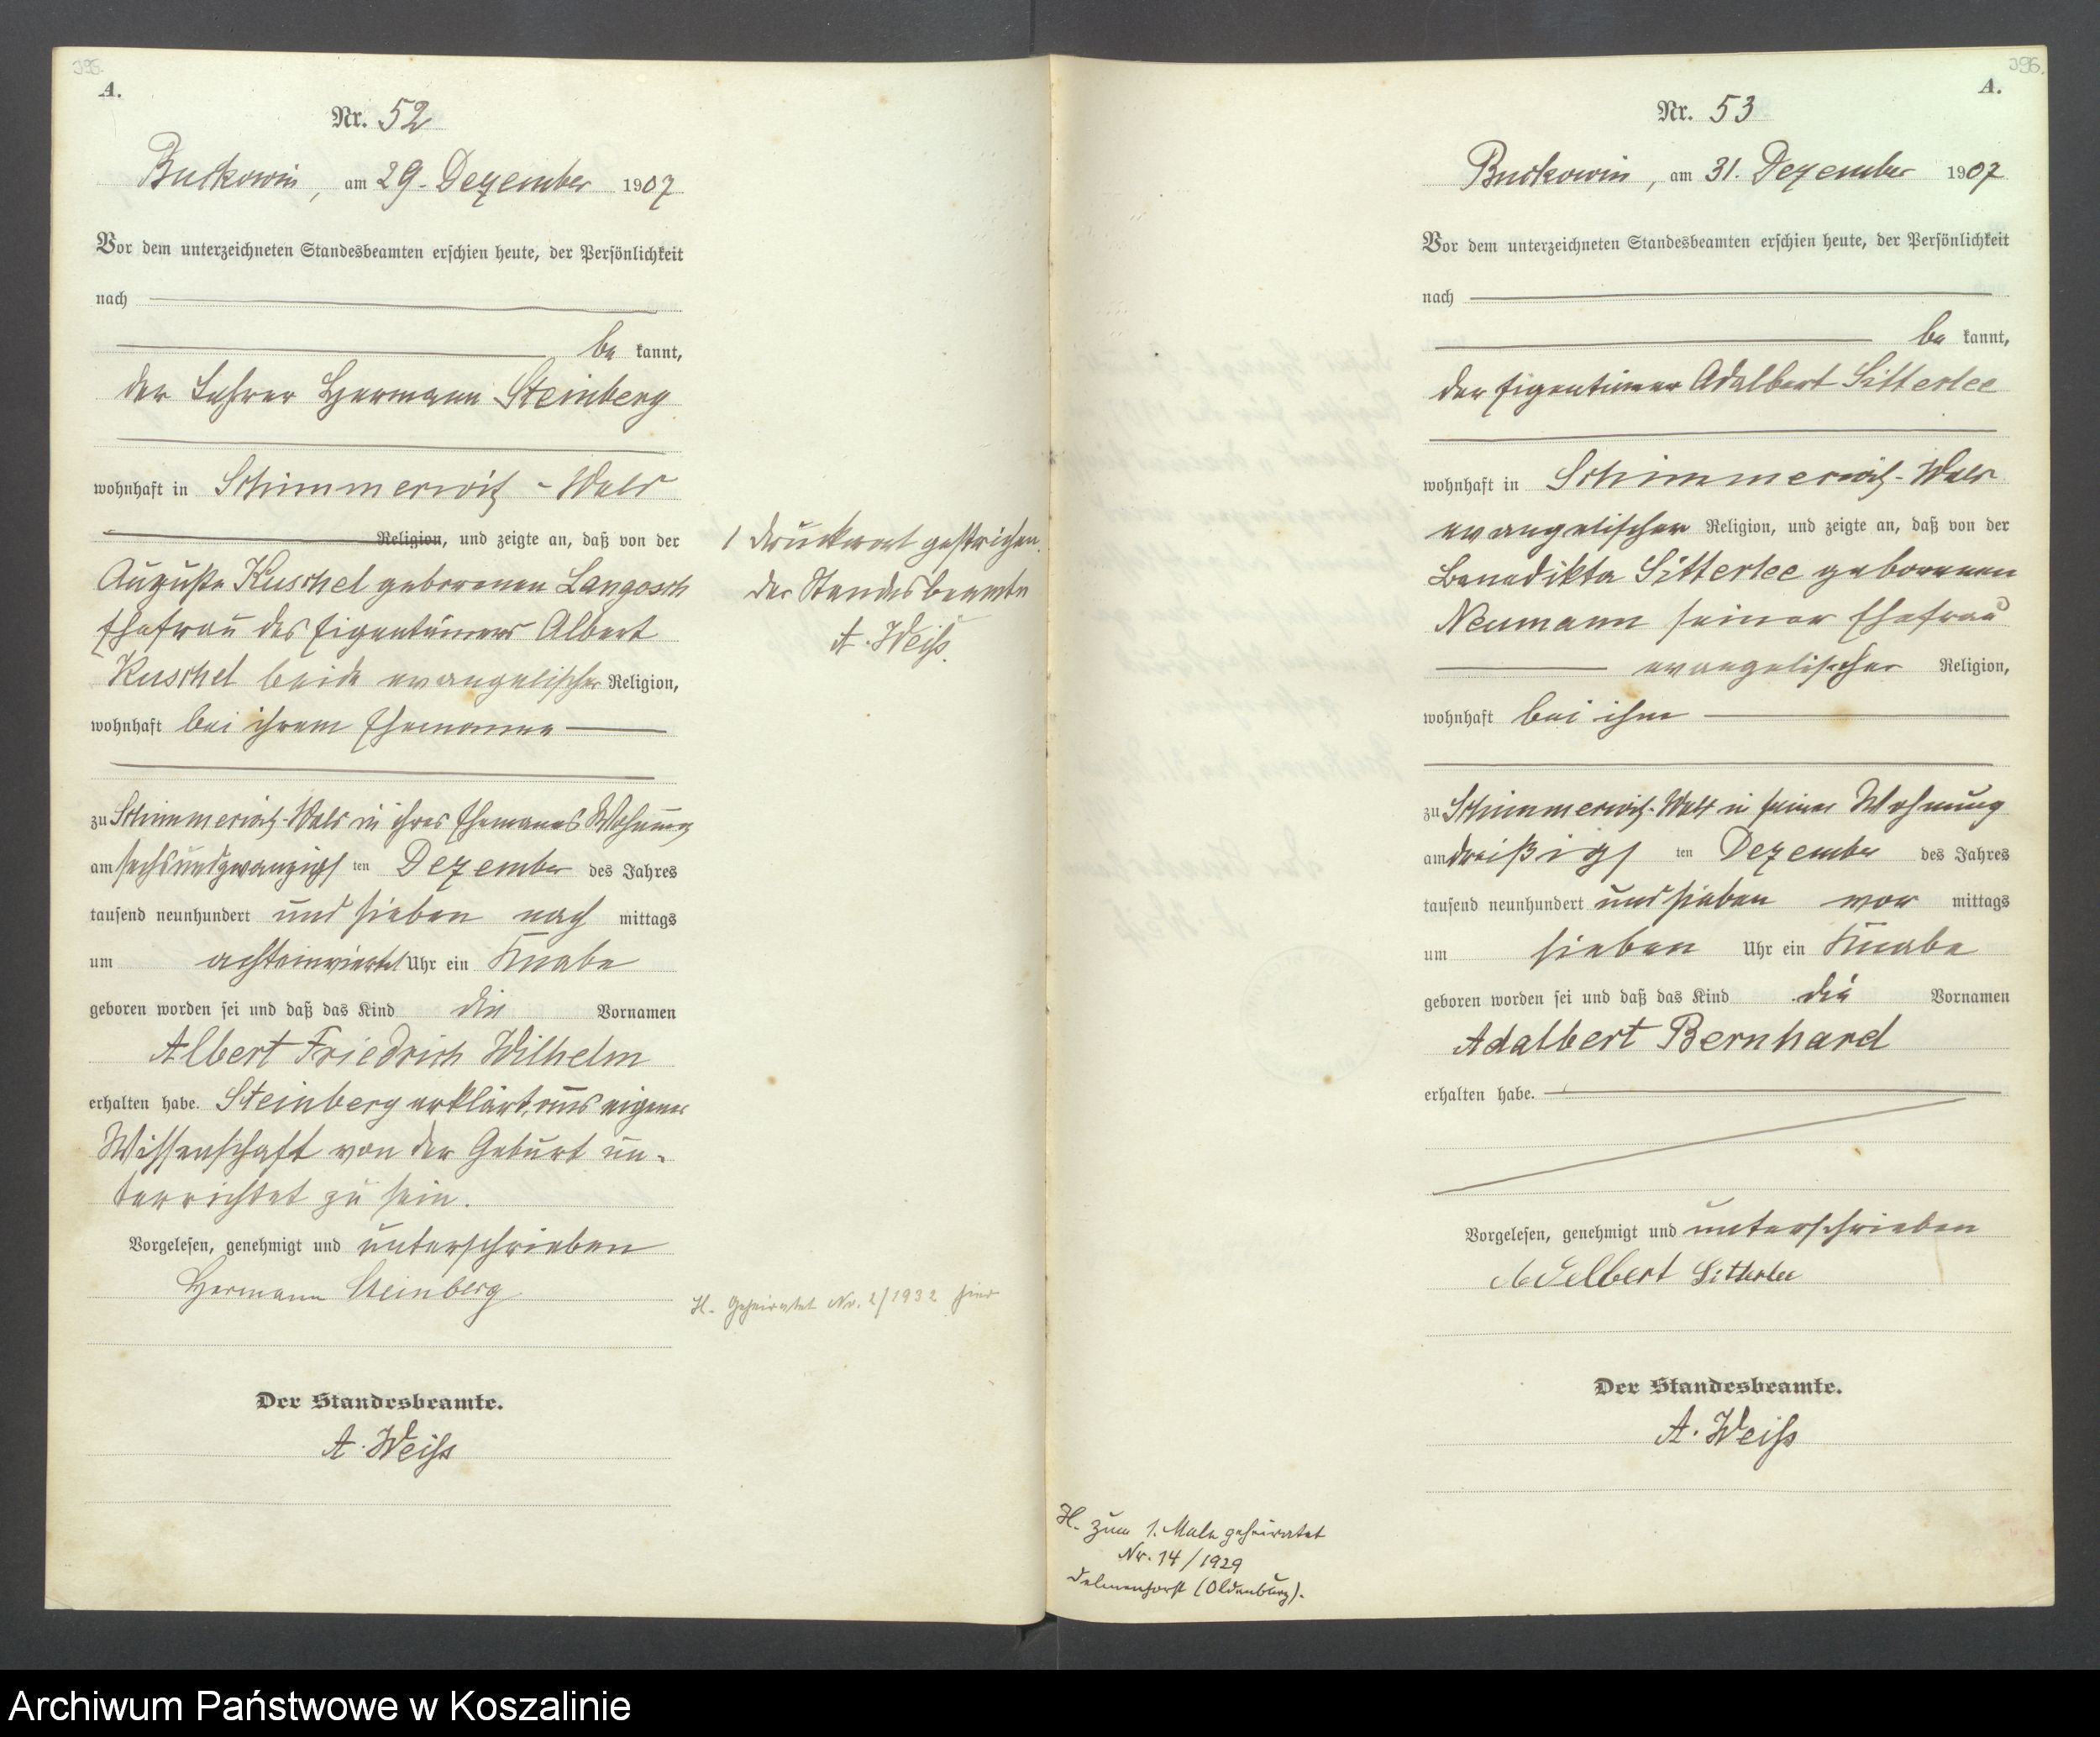 395.
A.
Nr. 52
Buckowin, am 29. Dezember 1907
Vor dem unterzeichneten Standesbeamten erschien heute, der Persönlichkeit
nach
be kannt,
der Lehrer Hermann Steinberg
wohnhaft in Schimmerwitz-Wald
Religion, und zeigte an, daß von der
Auguste Kuschel geborenen Langosch
Ehefrau des Eigentümers Albert
Kuschel beide evangelischer Religion,
wohnhaft bei ihrem Ehemanne
zu Schimmerwitz-Wald in ihres Ehemanns Wohnung
am sechsundzwanzigs ten Dezember des Jahres
tausend neunhundert und sieben nach mittags
um achteinviertel Uhr ein Knabe
geboren worden sei und daß das Kind die Vornamen
Albert Friedrich Wilhelm
erhalten habe. Steinberg erklärt, aus eigener
Wissenschaft von der Geburt un-
terrichtet zu sein.
Vorgelesen, genehmigt und unterschrieben
Hermann Steinberg
Der Standesbeamte.
A. Weiß
1 Druckwort gestrichen.
Der Standesbeamte
A. Weiß.
H. Geheiratet Nr. 2/1932 hier
396.
A.
Nr. 53
Buckowin, am 31. Dezember 1907
Vor dem unterzeichneten Standesbeamten erschien heute, der Persönlichkeit
nach
be kannt,
der Eigentümer Adalbert Sitterlee
wohnhaft in Schimmerwitz-Wald
evangelischer Religion, und zeigte an, daß von der
Benedikta Sitterlee geborenen
Neumann seiner Ehefrau
evangelischer Religion,
wohnhaft bei ihm
zu Schimmerwitz-Wald in seiner Wohnung
am dreißigs ten Dezember des Jahres
tausend neunhundert und sieben vor mittags
um sieben Uhr ein Knabe
geboren worden sei und daß das Kind die Vornamen
Adalbert Bernhard
erhalten habe.
Vorgelesen, genehmigt und unterschrieben
Adelbert Sitterlee
Der Standesbeamte.
A. Weiß
H. zum 1. Male geheiratet
Nr. 14/1929
Delmenhorst (Oldenburg).
Archiwum Państwowe w Koszalinie